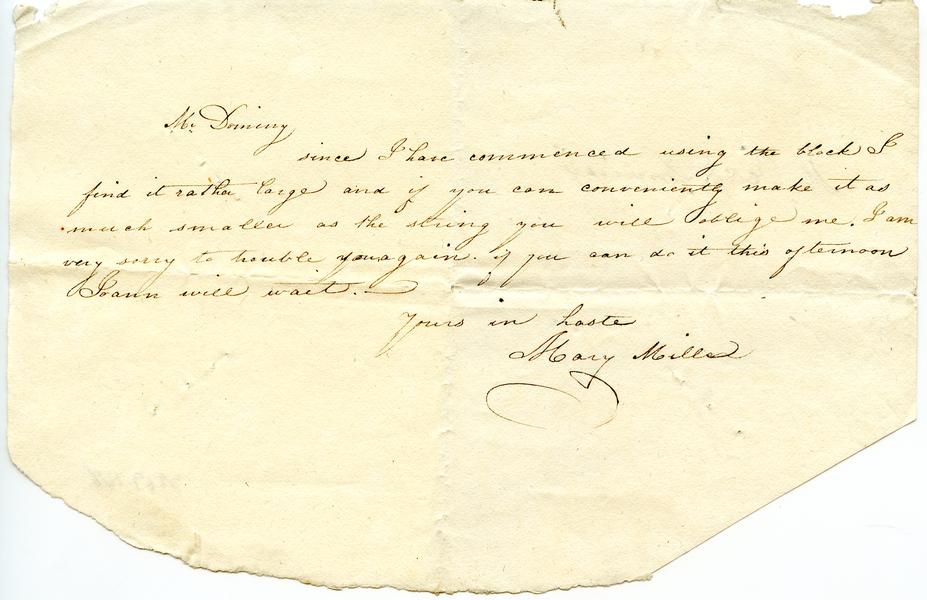 Mr. Dominy
since I have commenced using the block I
find it rather large and if you can conveniently make it as
much smaller as the string you will oblige me. I am
very sorry to trouble you again. if you can do it this afternoon
will wait.
Yours in haste
Mary Mills